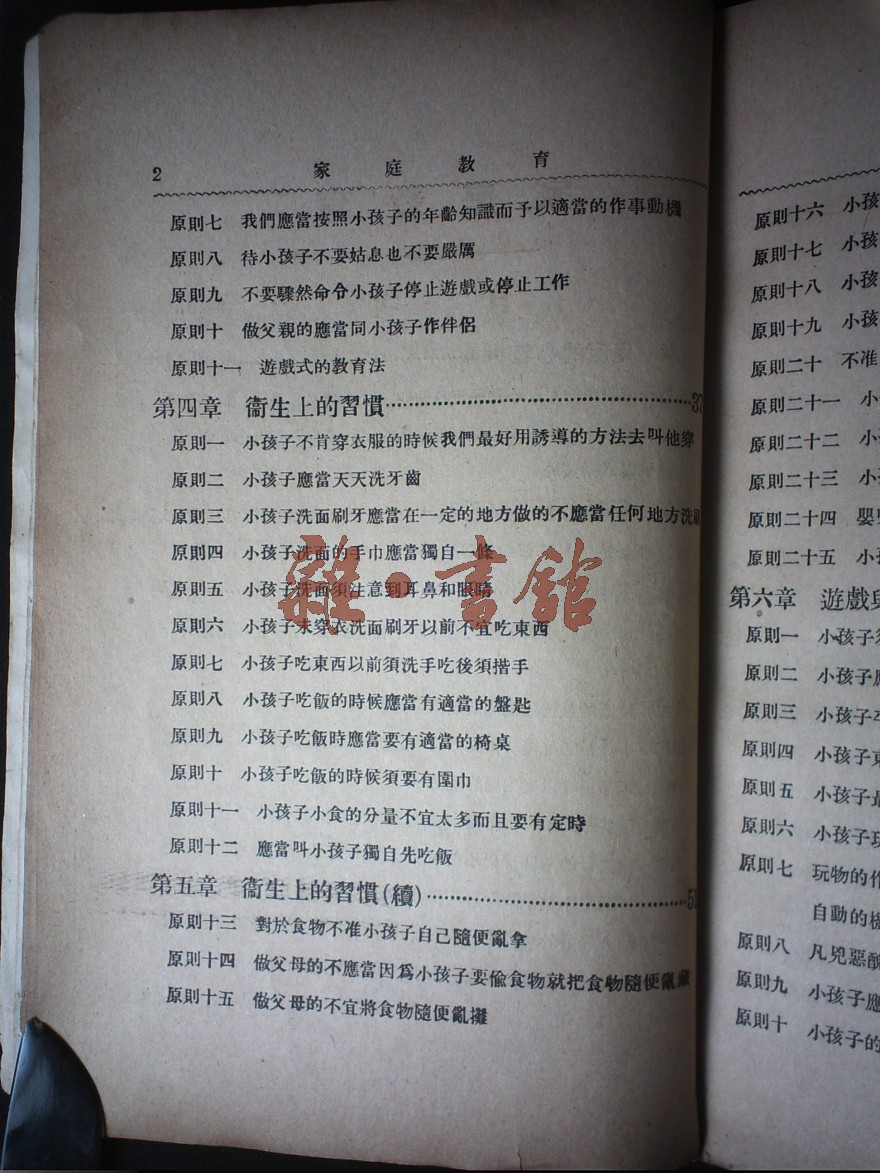 2 家庭教育
原則七 我們應當按照小孩子的年齡知識而予以適當的作事動機
原則八 待小孩子不要姑息也不要嚴厲
原則九 不要驟然命令小孩子停止遊戲或停止工作
原則十 做父親的應當同小孩子作伴侶
原則十一 遊戲式的教育法
第四章 衞生上的習慣……37
原則一 小孩子不肯穿衣服的時候我們最好用誘導的方法去叫他穿
原則二 小孩子應當天天洗牙齒
原則三 小孩子洗面刷牙應當在一定的地方做的不應當任何地方洗刷
原則四 小孩子洗面的手巾應當獨自一條
原則五 小孩子洗面須注意到耳鼻和眼睛
原則六 小孩子未穿衣洗面刷牙以前不宜吃東西
原則七 小孩子吃東西以前須洗手吃後須揩手
原則八 小孩子吃飯的時候應當有適當的盤匙
原則九 小孩子吃飯時應當要有適當的椅桌
原則十 小孩子吃飯的時候須要有圍巾
原則十一 小孩子小食的分量不宜太多而且要有定時
原則十二 應當叫小孩子獨自先吃飯
第五章 衞生上的習慣(續)……51
原則十三 對於食物不准小孩子自己隨便亂拿
原則十四 做父母的不應當因爲小孩子要偷食物就把食物隨便亂藏
原則十五 做父母的不宜將食物隨便亂攤
雜·書館
原則十六 小孩
原則十七 小孩
原則十八 小孩
原則十九 小孩
原則二十 不准
原則二十一 小
原則二十二 小
原則二十三 小
原則二十四 嬰
原則二十五 小
第六章 遊戲與
原則一 小孩子
原則二 小孩子應
原則三 小孩子
原則四 小孩子
原則五 小孩子
原則六 小孩子玩
原則七 玩物的作
自動的機
原則八 凡兇惡醜
原則九 小孩子應
原則十 小孩子的